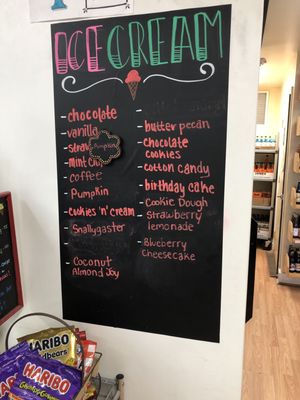 ICE CREAM
- chocolate
- vanilla
- straw
Pumpkin
- mint
- coffee
- Pumpkin
- cookies 'n' cream
- Snallygaster
- Coconut
Almond Joy
- butter pecan
- chocolate
cookies
- cotton candy
- birthday cake
- Cookie Dough
- Strawberry
lemonade
- Blueberry
cheesecake
HARIBO
HARIBO